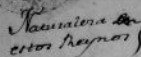 Naturaleza en
estos Reynos